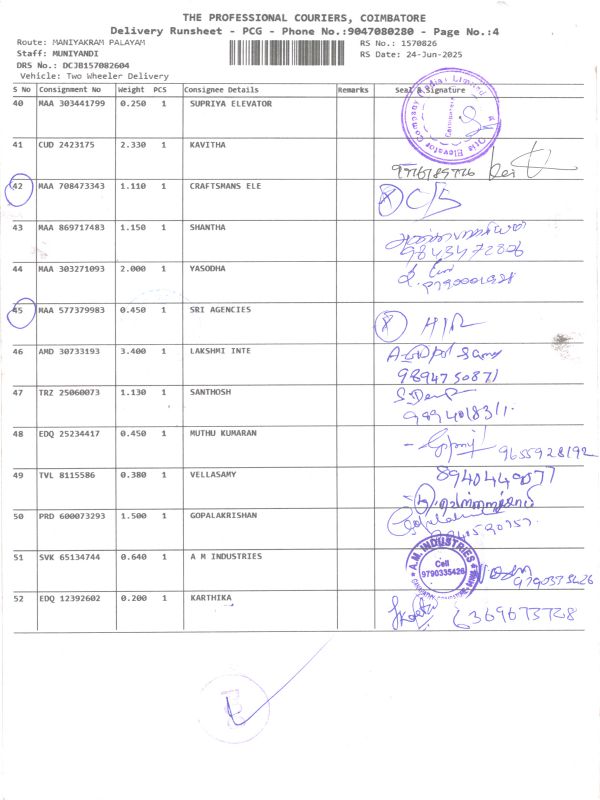 THE PROFESSIONAL COURIERS, COIMBATORE
Delivery Runsheet - PCG - Phone No.:9047080280 - Page No.:4
Route: MANIYAKRAM PALAYAM
RS No.: 1570826
Staff: MUNIYANDI
RS Date: 24-Jun-2025
DRS No.: DCJB157082604
Vehicle: Two Wheeler Delivery
S No Consignment No Weight PCS Consignee Details Remarks Seal & Signature
40 MAA 303441799 0.250 1 SUPRIYA ELEVATOR
41 CUD 2423175 2.330 1 KAVITHA
42 MAA 708473343 1.110 1 CRAFTSMANS ELE
43 MAA 869717483 1.150 1 SHANTHA
9843472806
44 MAA 303271093 2.000 1 YASODHA
45 MAA 577379983 0.450 1 SRI AGENCIES
46 AMD 30733193 3.400 1 LAKSHMI INTE
9894750871
47 TRZ 25060073 1.130 1 SANTHOSH
48 EDQ 25234417 0.450 1 MUTHU KUMARAN
9655928192
49 TVL 8115586 0.380 1 VELLASAMY
8940449077
50 PRD 600073293 1.500 1 GOPALAKRISHAN
51 SVK 65134744 0.640 1 A M INDUSTRIES
A.M. INDUSTRIES
Cell
9790335426
52 EDQ 12392602 0.200 1 KARTHIKA
6369673728